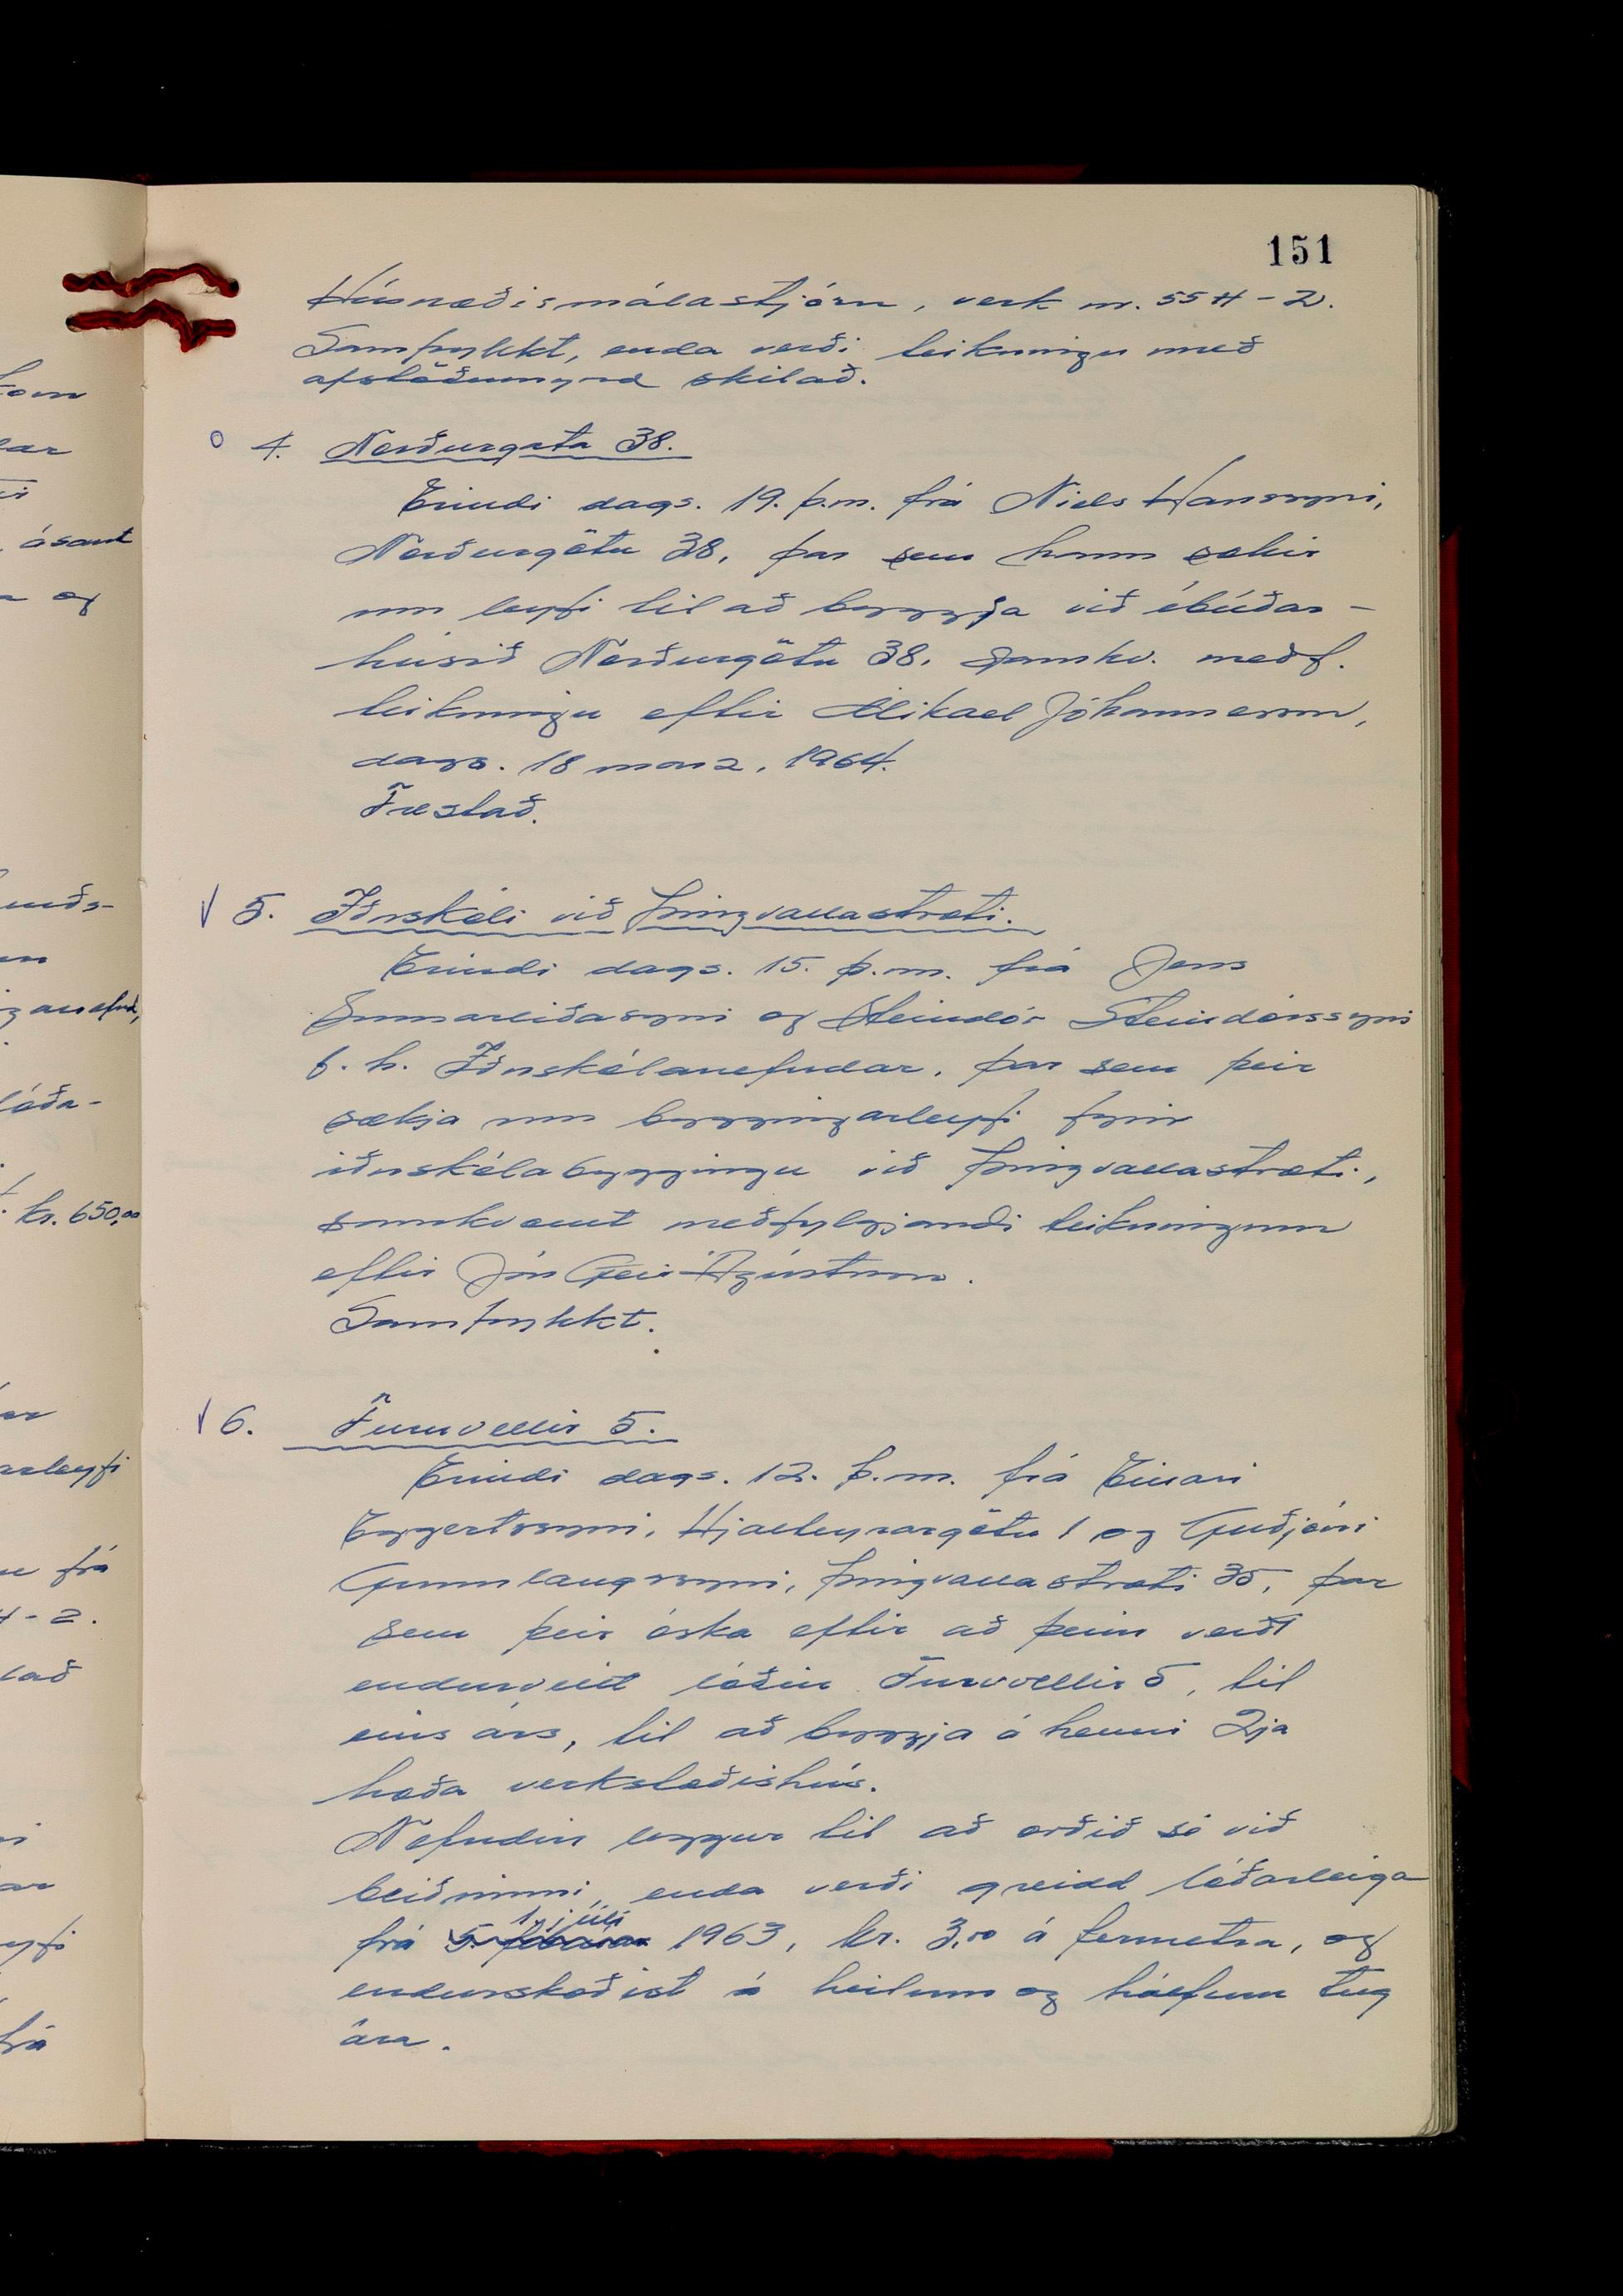 151
Húsnæðismálastjórn, verk nr. 55 H - 2.
Samþykkt, enda verði teikningu með
afstöðumynd skilað.
o 4. Norðurgata 38.
Erindi dags. 19. þ.m. frá Niels Hanssyni,
Norðurgötu 38, þar sem hann sækir
um leyfi til að byggja við íbúðar-
húsið Norðurgötu 38, samkv. meðf.
teikningu eftir Mikael Jóhannesson,
dags. 18 marz, 1964.
Frestað.
√ 5. Iðnskóli við Þingvallastræti.
Erindi dags. 15. þ.m. frá Jens
Sumarliðasyni og Steindór Steindórssyni
f. h. Iðnskólanefndar, þar sem þeir
sækja um byggingarleyfi fyrir
iðnskólabyggingu við Þingvallastræti,
samkvæmt meðfylgjandi teikningum
eftir Jón Geir Ágústsson.
Samþykkt.
√ 6. Furuvellir 5.
Erindi dags. 12. þ.m. frá Einari
Eggertssyni, Hjalteyrargötu 1 og Guðjóni
Gunnlaugssyni, Þingvallastræti 35, þar
sem þeir óska eftir að þeim verði
endurveitt lóðin Furuvellir 5, til
eins árs, til að byggja á henni 2ja
hæða verkstæðishús.
Nefndin leggur til að orðið sé við
beiðninni, enda verði greidd lóðarleiga
1. júlí
frá 5. febrúar 1963, kr. 3,00 á fermetra, og
endurskoðist á heilum og hálfum tug
ára.
ásamt
og
kr. 650,00
frá